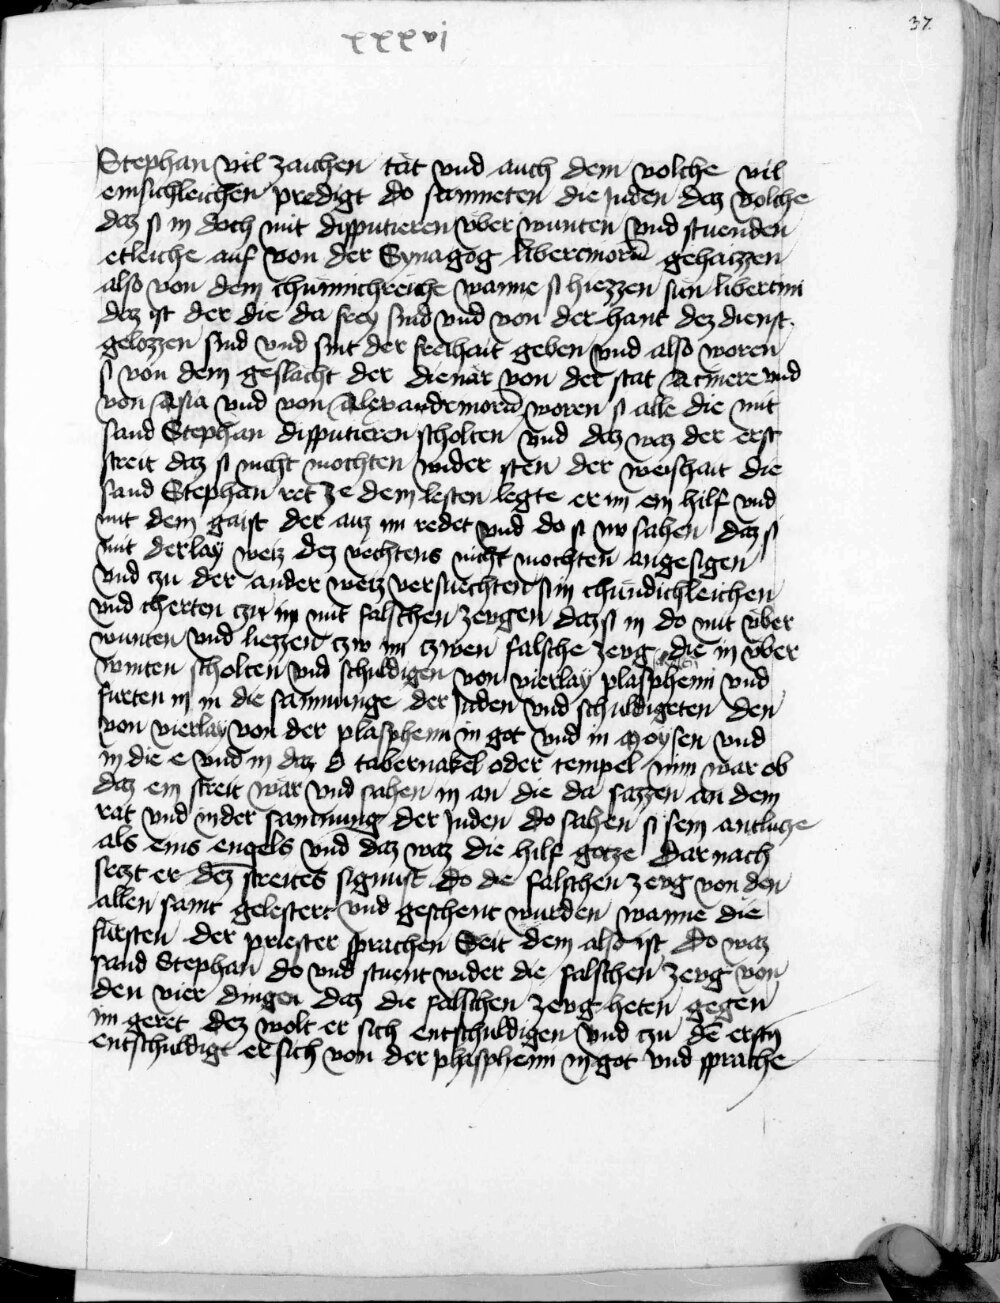 37
xxxvi
Stephan vil zaichen tät vnd auch dem volche vil
einsichleichen predigt do sammeten die Juden daz volche
daz si in doch mit disputieren über wunten vnd stuenden
etleiche auf von der Synagog libertinorū gehaizzen
also von dem chünnichreiche wanne si hiezzen sün libertini
daz ist der die da frey sind vnd von der hant dez dienst
gelozzen sind vnd sint der freihait geben vnd also woren
si von dem geslächt der dienär von der stat Actinere vnd
von Asia vnd von Alexandrinorū woren si alle die mit
sand Stephan disputieren scholten vnd daz waz der erst
streit daz si nicht mochten wider sten der weishait die
sand Stephan ret ze dem lesten legte er im ein hilf vnd
mit dem gaist der auz im redet vnd do si nv sahen daz si
mit derlay weiz dez vechtens nicht mochten angesigen
vnd czu der ander weiz versuechten si in chündichleichen
vnd cherten czu im mit falschen zeugen daz si in do mit über
wunten vnd liezzen czw im czwen falsche zeug die in über
winten scholten vnd schuldigen von vierlay plasphemi vnd
furten in in die samnunge der Juden vnd schuldigeten den
von vierlay von der plasphemi in got vnd in Moysen vnd
in die e vnd in daz d tabernakel oder tempel nim war ob
daz ein streit wär vnd sahen in an die da sazzen an dem
rat vnd in der samnung der Juden do sahen si sein antlucze
als eins engels vnd daz waz die hilf gotze Dar nach
seczt er dez streites signust do die falschen zeug von den
allen samt gelestert vnd geschent wurden wanne die
fürsten der priester sprachen Seit dem also ist do waz
sand Stephan do vnd stuent wider die falschen zeug von
den vier dingen daz die falschen zeug heten gegen
im geret dez wolt er sich entschuldigen vnd czu dē ersten
entschuldigt er sich von der plasphemi in got vnd sprache